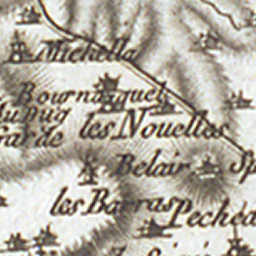 Michella
Bournazguel
du Pug
Garde
les Nouelles
Belair
Sp
les Barras
Peched